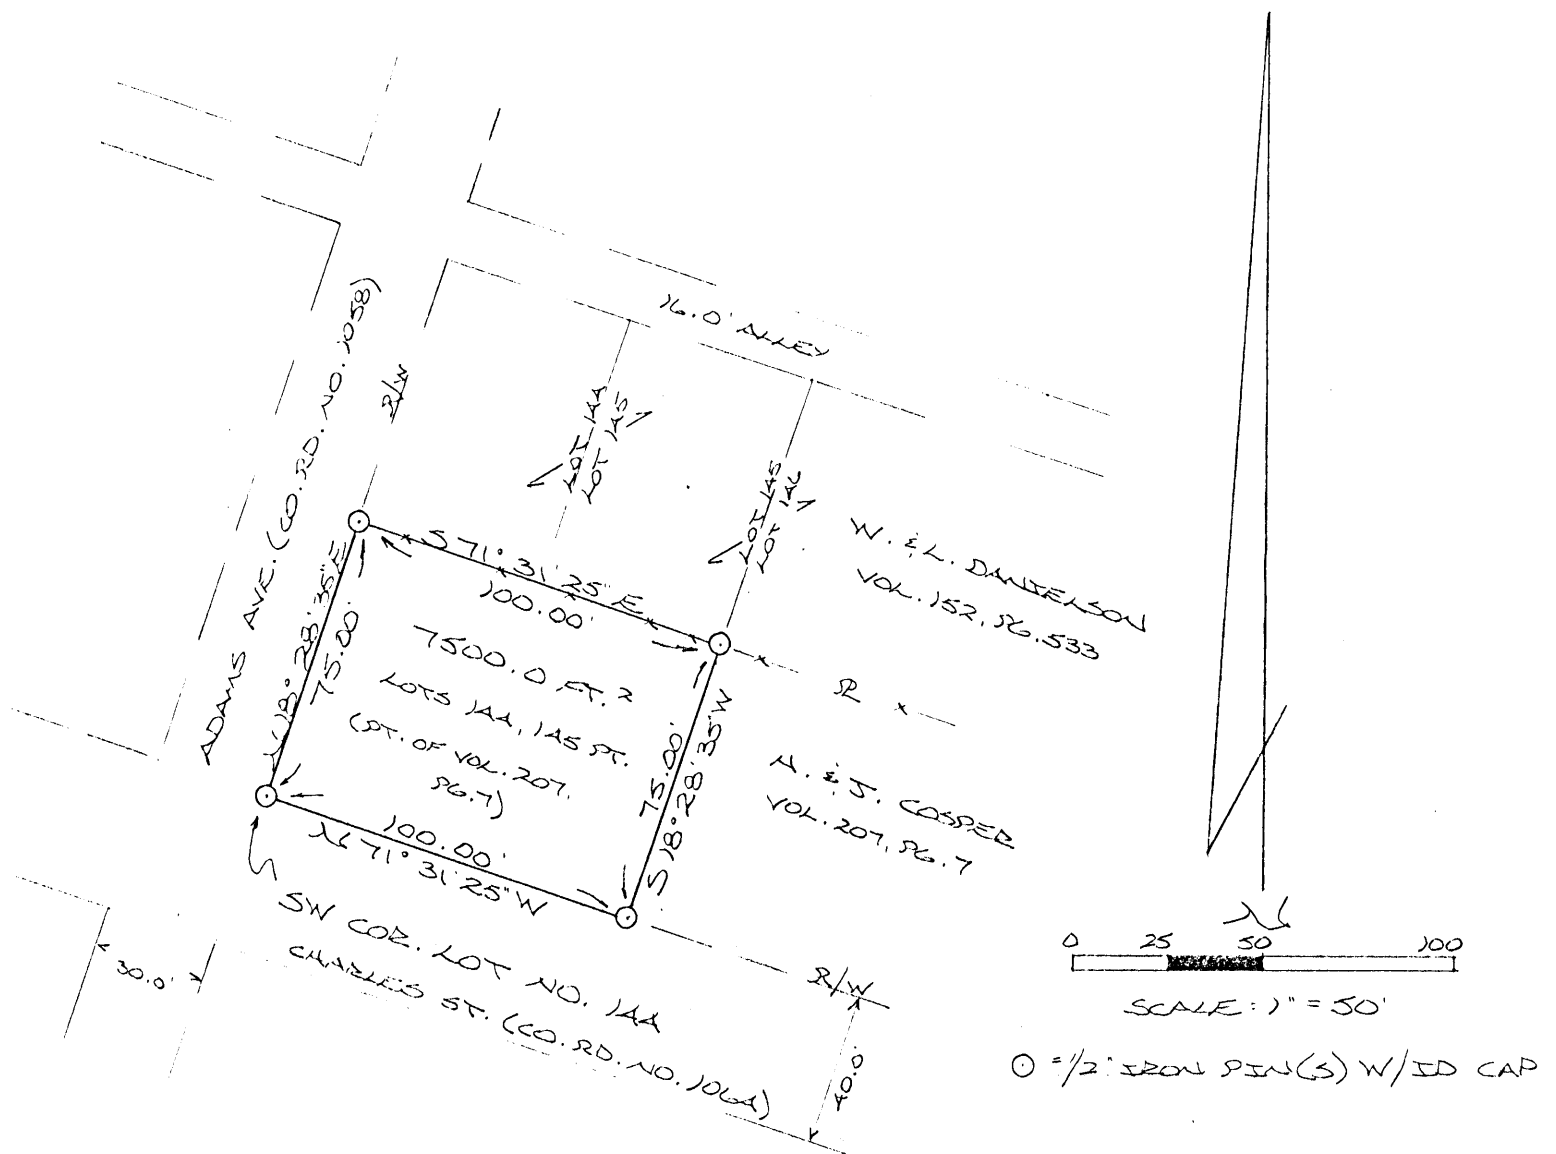 16.0' ALLEY
ADAMS AVE. (CO. RD. NO. 1058)
R/W
LOT 144
LOT 145
LOT 145
LOT 146
W. & L. DANIELSON
VOL. 152, PG. 533
S 71° 31' 25" E
100.00'
N 18° 28' 35" E
75.00'
7500.0 FT.²
LOTS 144, 145 PT.
(PT. OF VOL. 207,
PG. 7)
75.00'
S 18° 28' 35" W
PL
H. & J. COSPER
VOL. 207, PG. 7
100.00'
N 71° 31' 25" W
SW COR. LOT NO. 144
CHARLES ST. (CO. RD. NO. 1064)
30.0'
R/W
40.0'
N
0 25 50 100
SCALE: 1" = 50'
⊙ = 1/2" IRON PIN(S) W/ID CAP